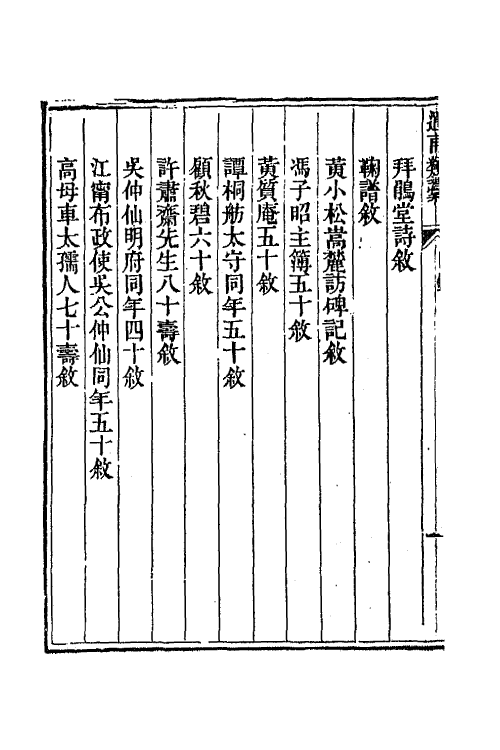 拜鵑堂詩敘
鞠譜敘
黃小松嵩麓訪碑記敘
馮子昭主簿五十敘
黃質庵五十敘
譚桐舫太守同年五十敘
顧秋碧六十敘
許肅齋先生八十壽敘
吳仲仙明府同年四十敘
江甯布政使吳公仲仙同年五十敘
高母車太孺人七十壽敘